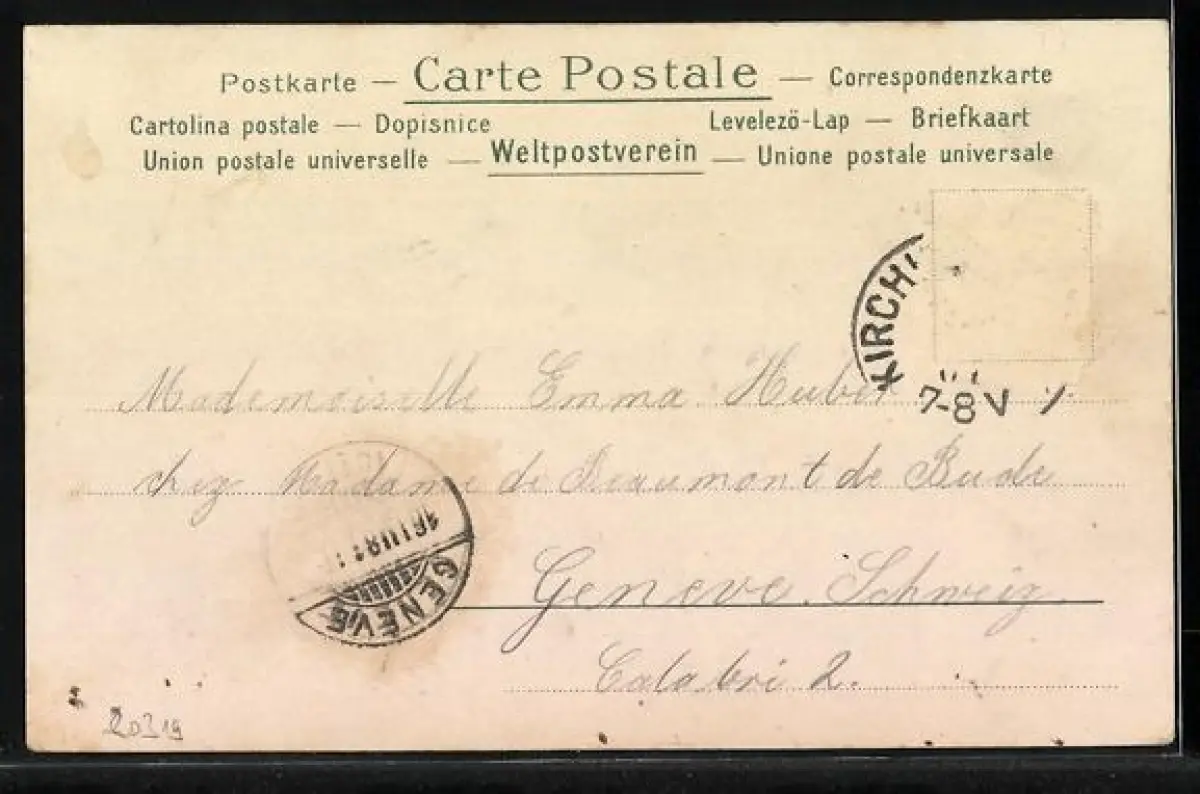 Postkarte — Carte Postale — Correspondenzkarte
Cartolina postale — Dopisnice Levelező-Lap — Briefkaart
Union postale universelle — Weltpostverein — Unione postale universale
KIRCH
7-8 V
Mademoiselle Emma Huber
chez Madame de Beaumont de Bude
GENÈVE
Geneve. Schweiz
Calabri 2.
20319